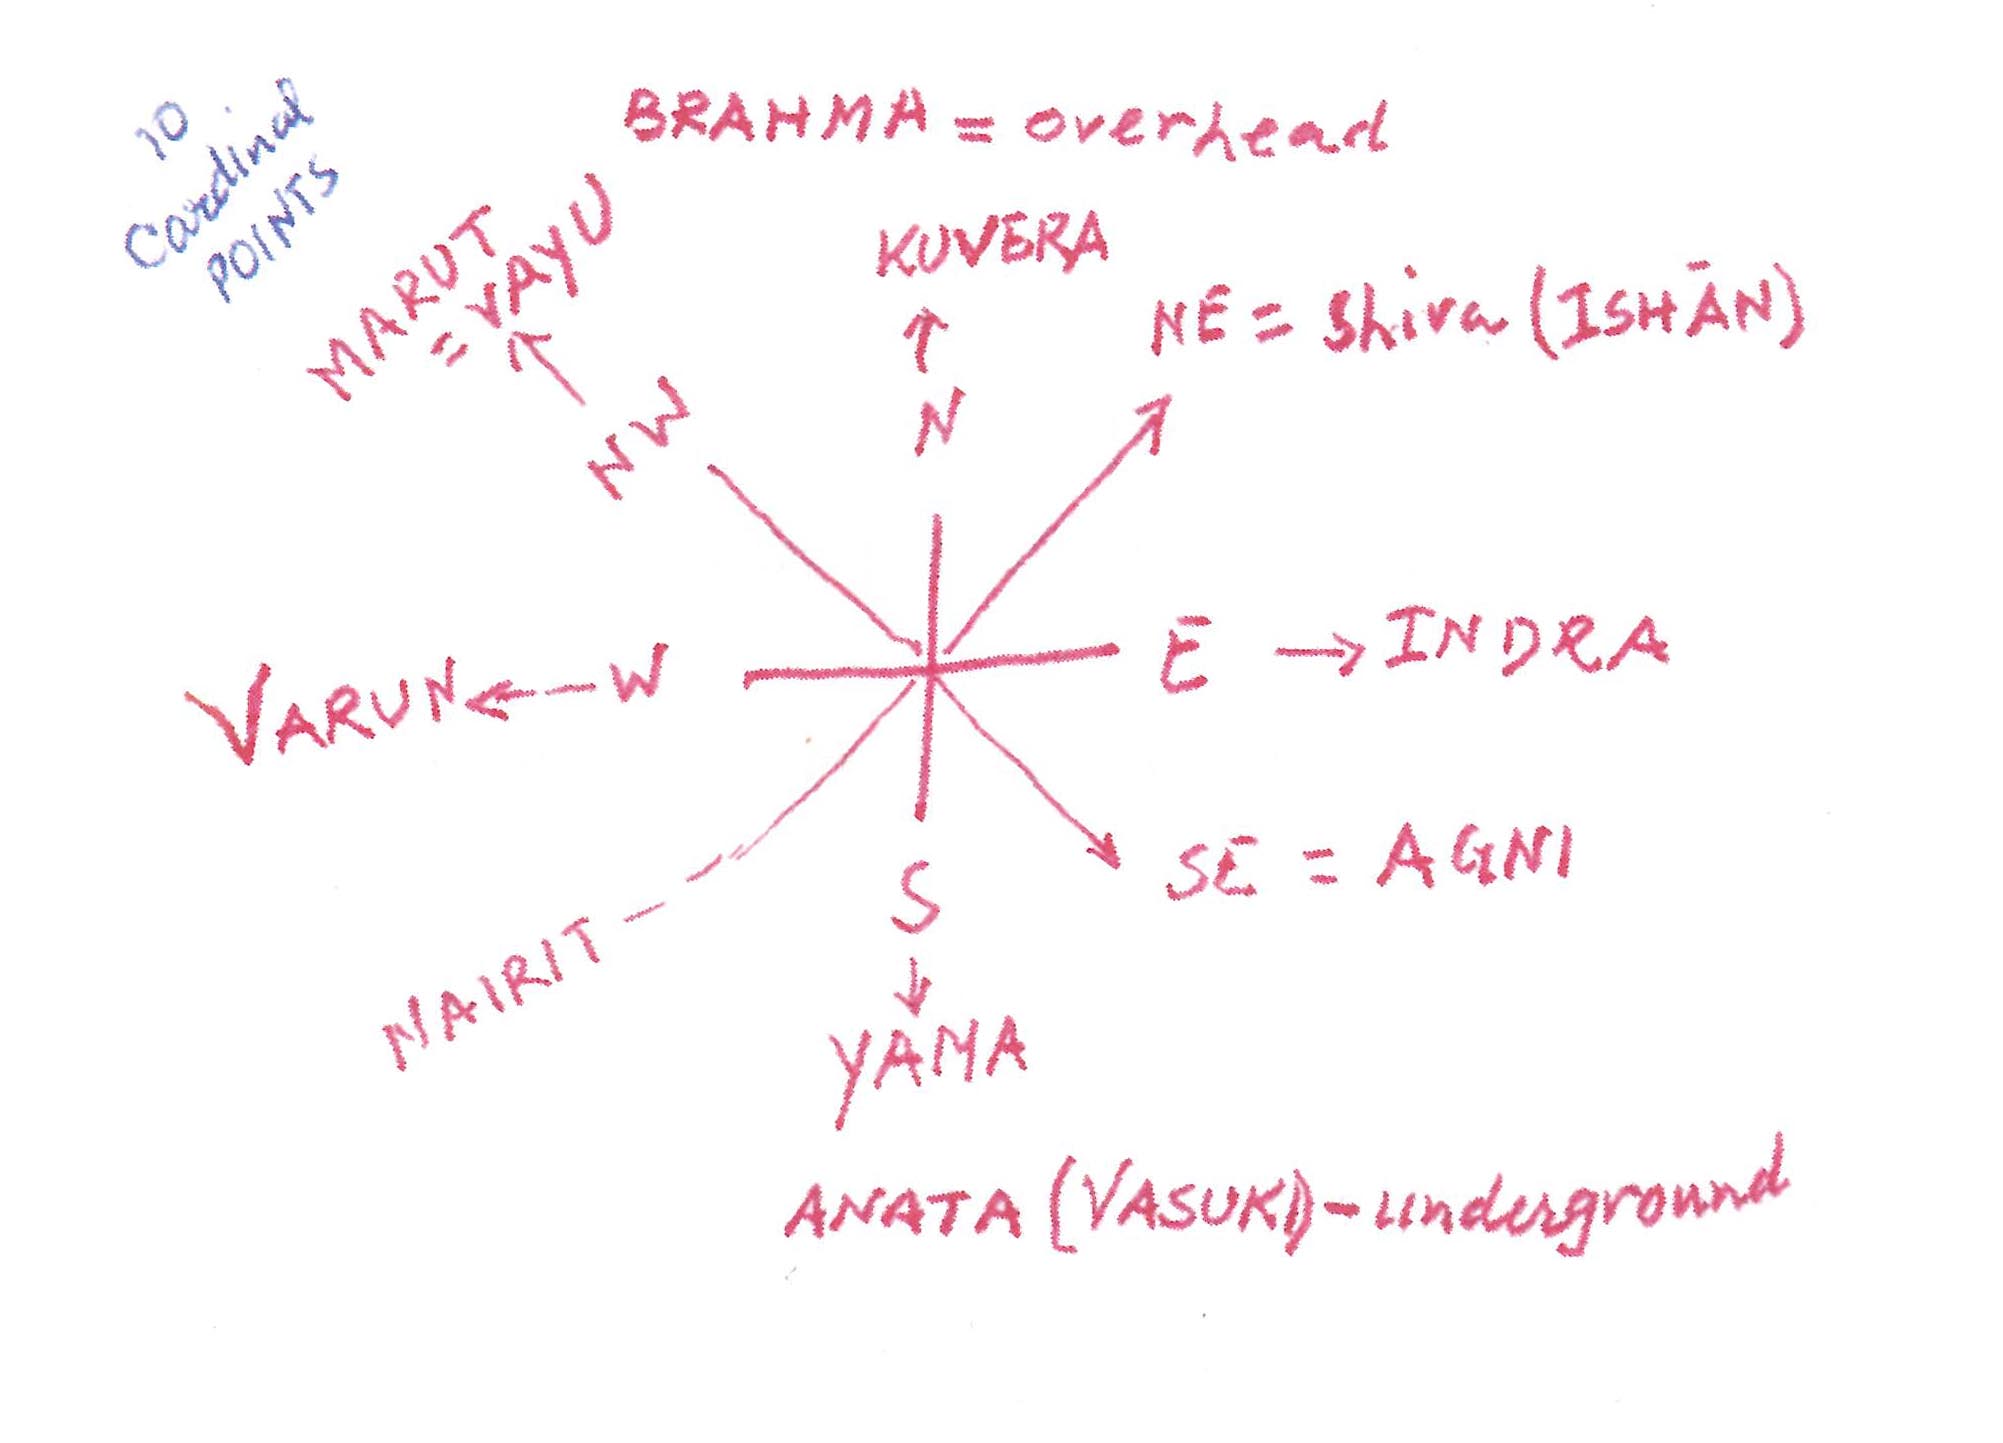 10
Cardinal
POINTS
BRAHMA = overhead
MARUT
= VAYU
KUVERA
NE = Shiva (ISHĀN)
N
NW
VARUN
W
E
INDRA
SE = AGNI
S
NAIRIT
YAMA
ANATA (VASUKI) - underground